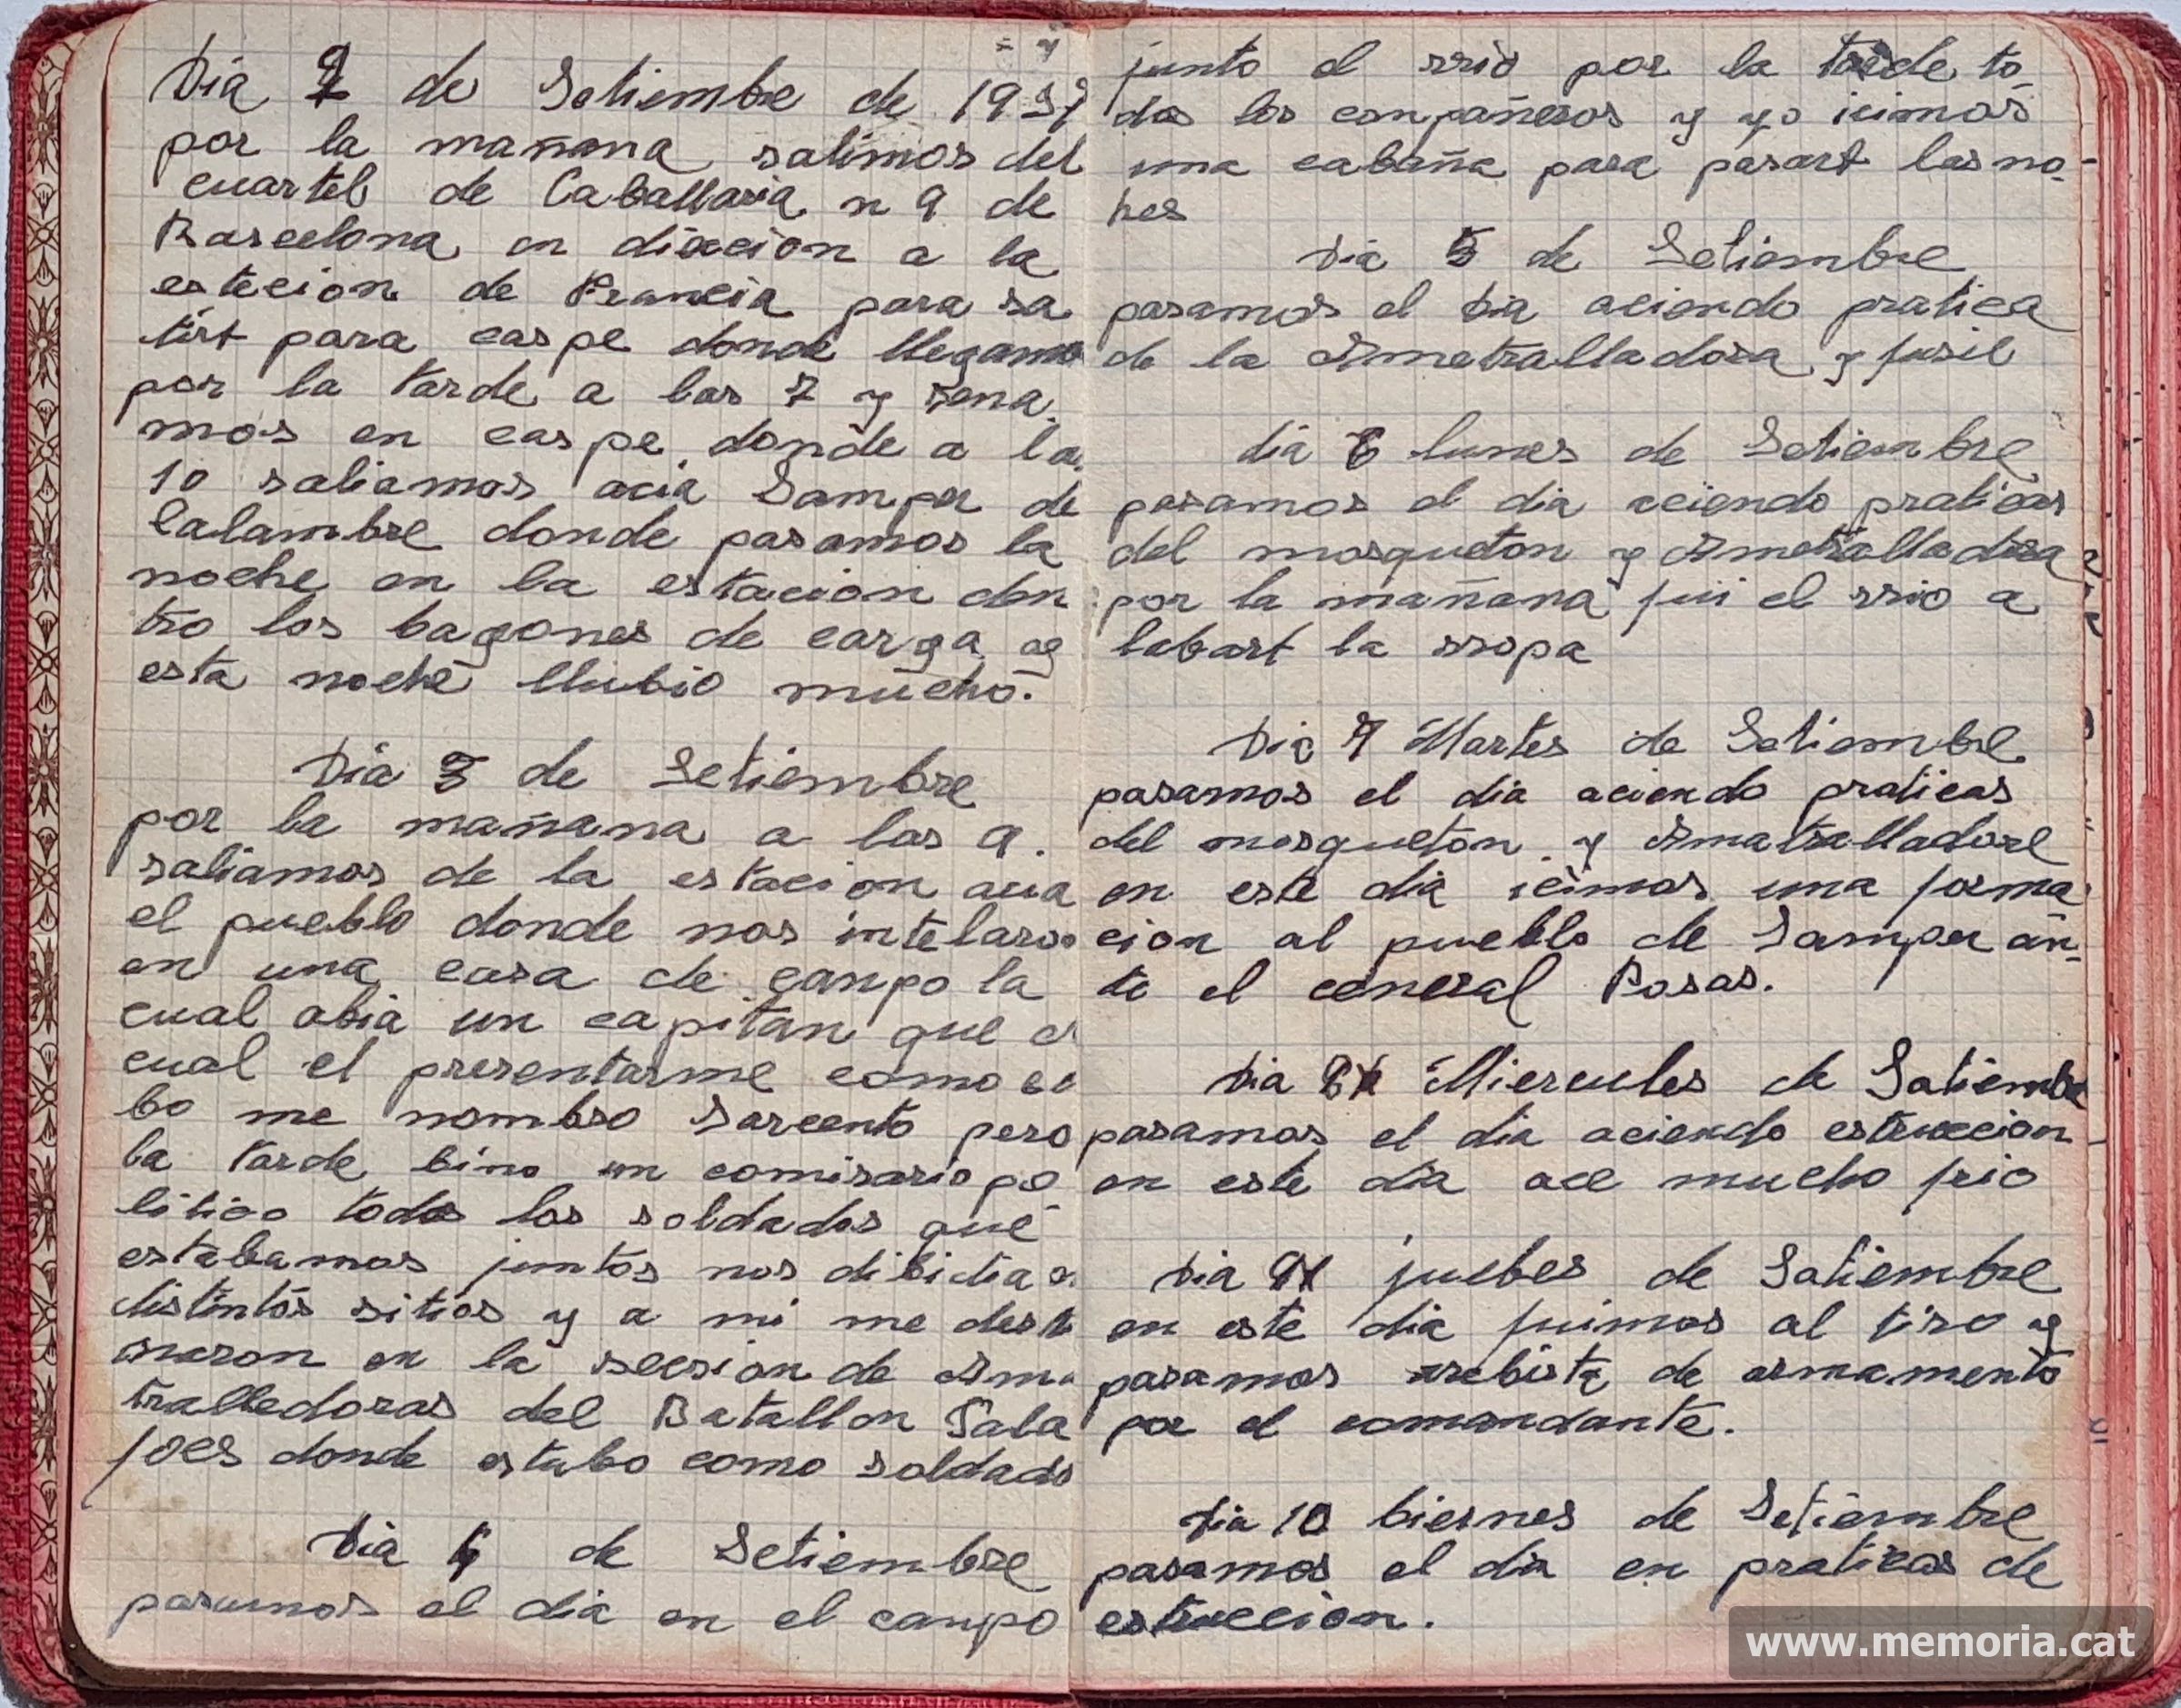 Dia 2 de Setiembre de 1937
por la mañana salimos del
cuartel de Caballaria n 9 de
Barcelona en direcion a la
estecion de Francia para sa
lirt para caspe donde llegamo
por la tarde a las 7 y sena
mos en caspe donde a la
10 saliamos acia Samper de
Calambre donde pasamos la
noche en la estacion den
tro los bagones de carga y
esta noche llubio mucho.
Dia 3 de Setiembre
por la mañana a las 9.
saliamos de la estacion acia
el pueblo donde nos intelaron
en una casa de canpo la
cual abia un capitan que el
cual el presentarme como ca
bo me nombro Sarcento pero
la tarde bino un comisario po
litico todos los soldados que
estabamos juntos nos dibidia en
distintos sitios y a mi me desti
naron en la secsion de Ama
tralledoras del Batallon Saba
joes donde estabo como soldado
Dia 4 de Setiembre
pasamos el dia en el canpo
junto el rrio por la tarde to
dos los conpañeros y yo icimos
una cabaña para pasart las no-
hes
Dia 5 de Setiembre
pasamos el dia aciendo pratica
de la Ametralladora y fusil
dia 6 lunes de Setiembre
pasamos el dia aciendo praticas
del mosqueton y Ametralladora
por la mañana fui el rrio a
labart la rropa
Dia 7 Martes de Setiembre
pasamos el dia aciendo praticas
del mosqueton y Amatralladore
en este dia icimos una forma
cion al pueblo de Samper an-
te el ceneral Posas.
Dia 8 Miercules de Satiembre
pasamos el dia aciendo estruccion
en este dia ace mucho frio
Dia 9 juebes de Satiembre
en este dia fuimos al tiro y
pasamos rrebista de armamento
por el comandante.
Dia 10 biernes de Setiembre
pasamos el dia en praticas de
estruccion.
www.memoria.cat